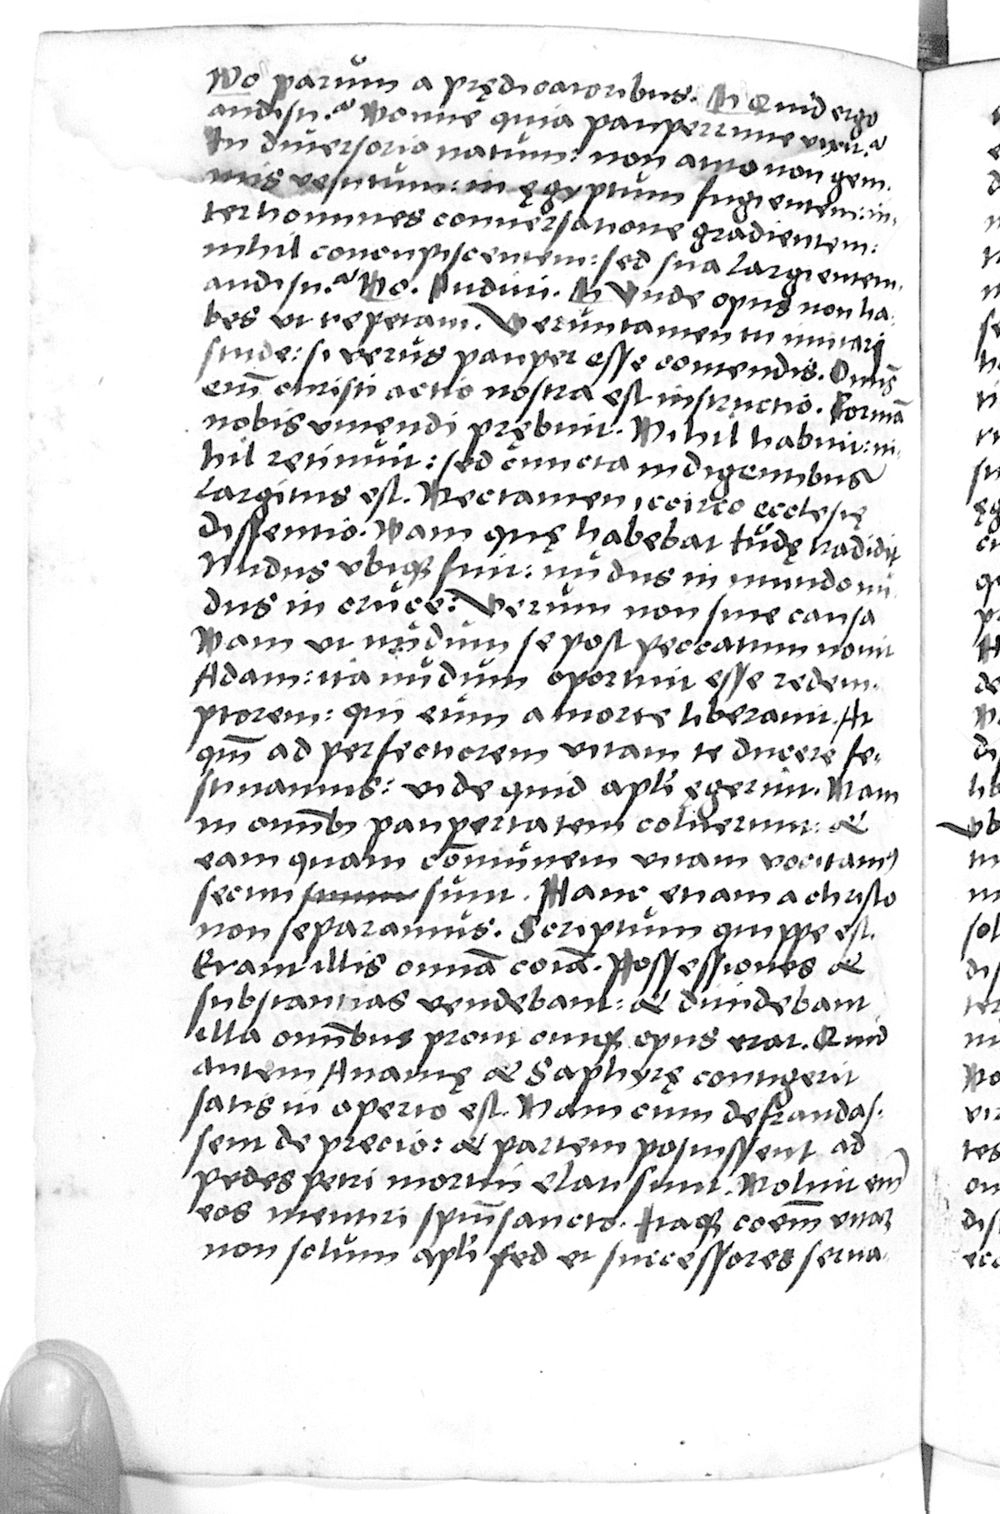 No parum a prędicatoribus. In Quid ergo
audisti? Nonne quia pauperrime vixit?
In diversorio natum: non auro non gem-
mis vestitum: in ęgyptum fugientem: in-
ter homines conversatione gradientem:
nihil concupiscentem: sed sua largientem
audisti? No. Audivi. In Unde opus non ha-
bes ut repetam. Veruntamen tu imitari
stude: si verus pauper esse contendis. Omīs
enī christi actio nostra est instructio. Formā
nobis vivendi prębuit. Nihil habuit: ni-
hil retinuit: sed cuncta indigentibus
largitus est. Nec tamen iccirco ecclesię
dissentio. Nam quę habebat Iudę tradidit
Nudus ubiqȝ fuit: nudus in mundo nu-
dus in cruce: Verum non sine causa
Nam ut nudum se post peccatum novit
Adam: ita nudum oportuit esse redem-
ptorem: qui eum a morte liberavit. At
qm̄ ad perfectiorem vitam te ducere fe-
stinamus: vide quid apl̄i egerint. Nam
in omnibȝ paupertatem coluerunt: &
eam quam cōmunem vitam vocitamꝰ
secuti sunt. Hanc etiam a christo
non separamus. Scriptum quippe est.
Erant illis omnīa coīa. Possessiones &
substantias vendebant: & dividebant
illa omnībus prout cuiqȝ opus erat. Quid
autem Ananię & Saphyrę contigerit
satis in aperto est. Nam cum defraudas-
sent de precio: & partem posuissent ad
pedes petri mortui elati sunt. Noluit enī
eos mentiri spirītusancto. Itaqȝ coem̄ vitā
non solum apl̄i sed et successores serva-